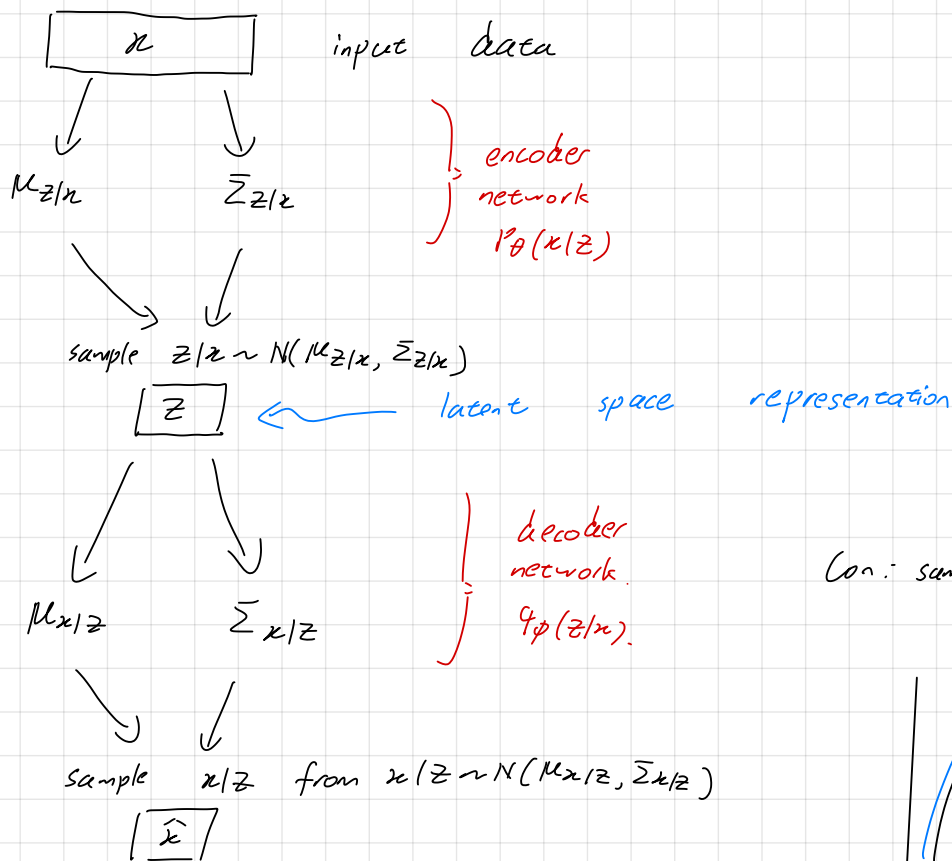 x input data
encoder
network
μz/x Σz/x
Pθ(x/z)
sample z/x ~ N(μz/x, Σz/x)
z latent space representation
decoder
network
Con:
μx/z Σx/z
qφ(z/x).
sample x/z from x/z ~ N(μx/z, Σx/z)
x̂